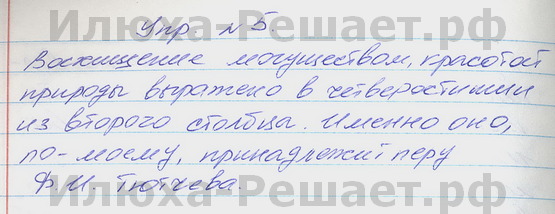 Илюха-Решает.рф
Упр. №5.
Восхищение могуществом, красотой
природы выражено в четверостишии
из второго столбца. Именно оно,
по-моему, принадлежит перу
Ф.И. Тютчева.
Илюха-Решает.рф